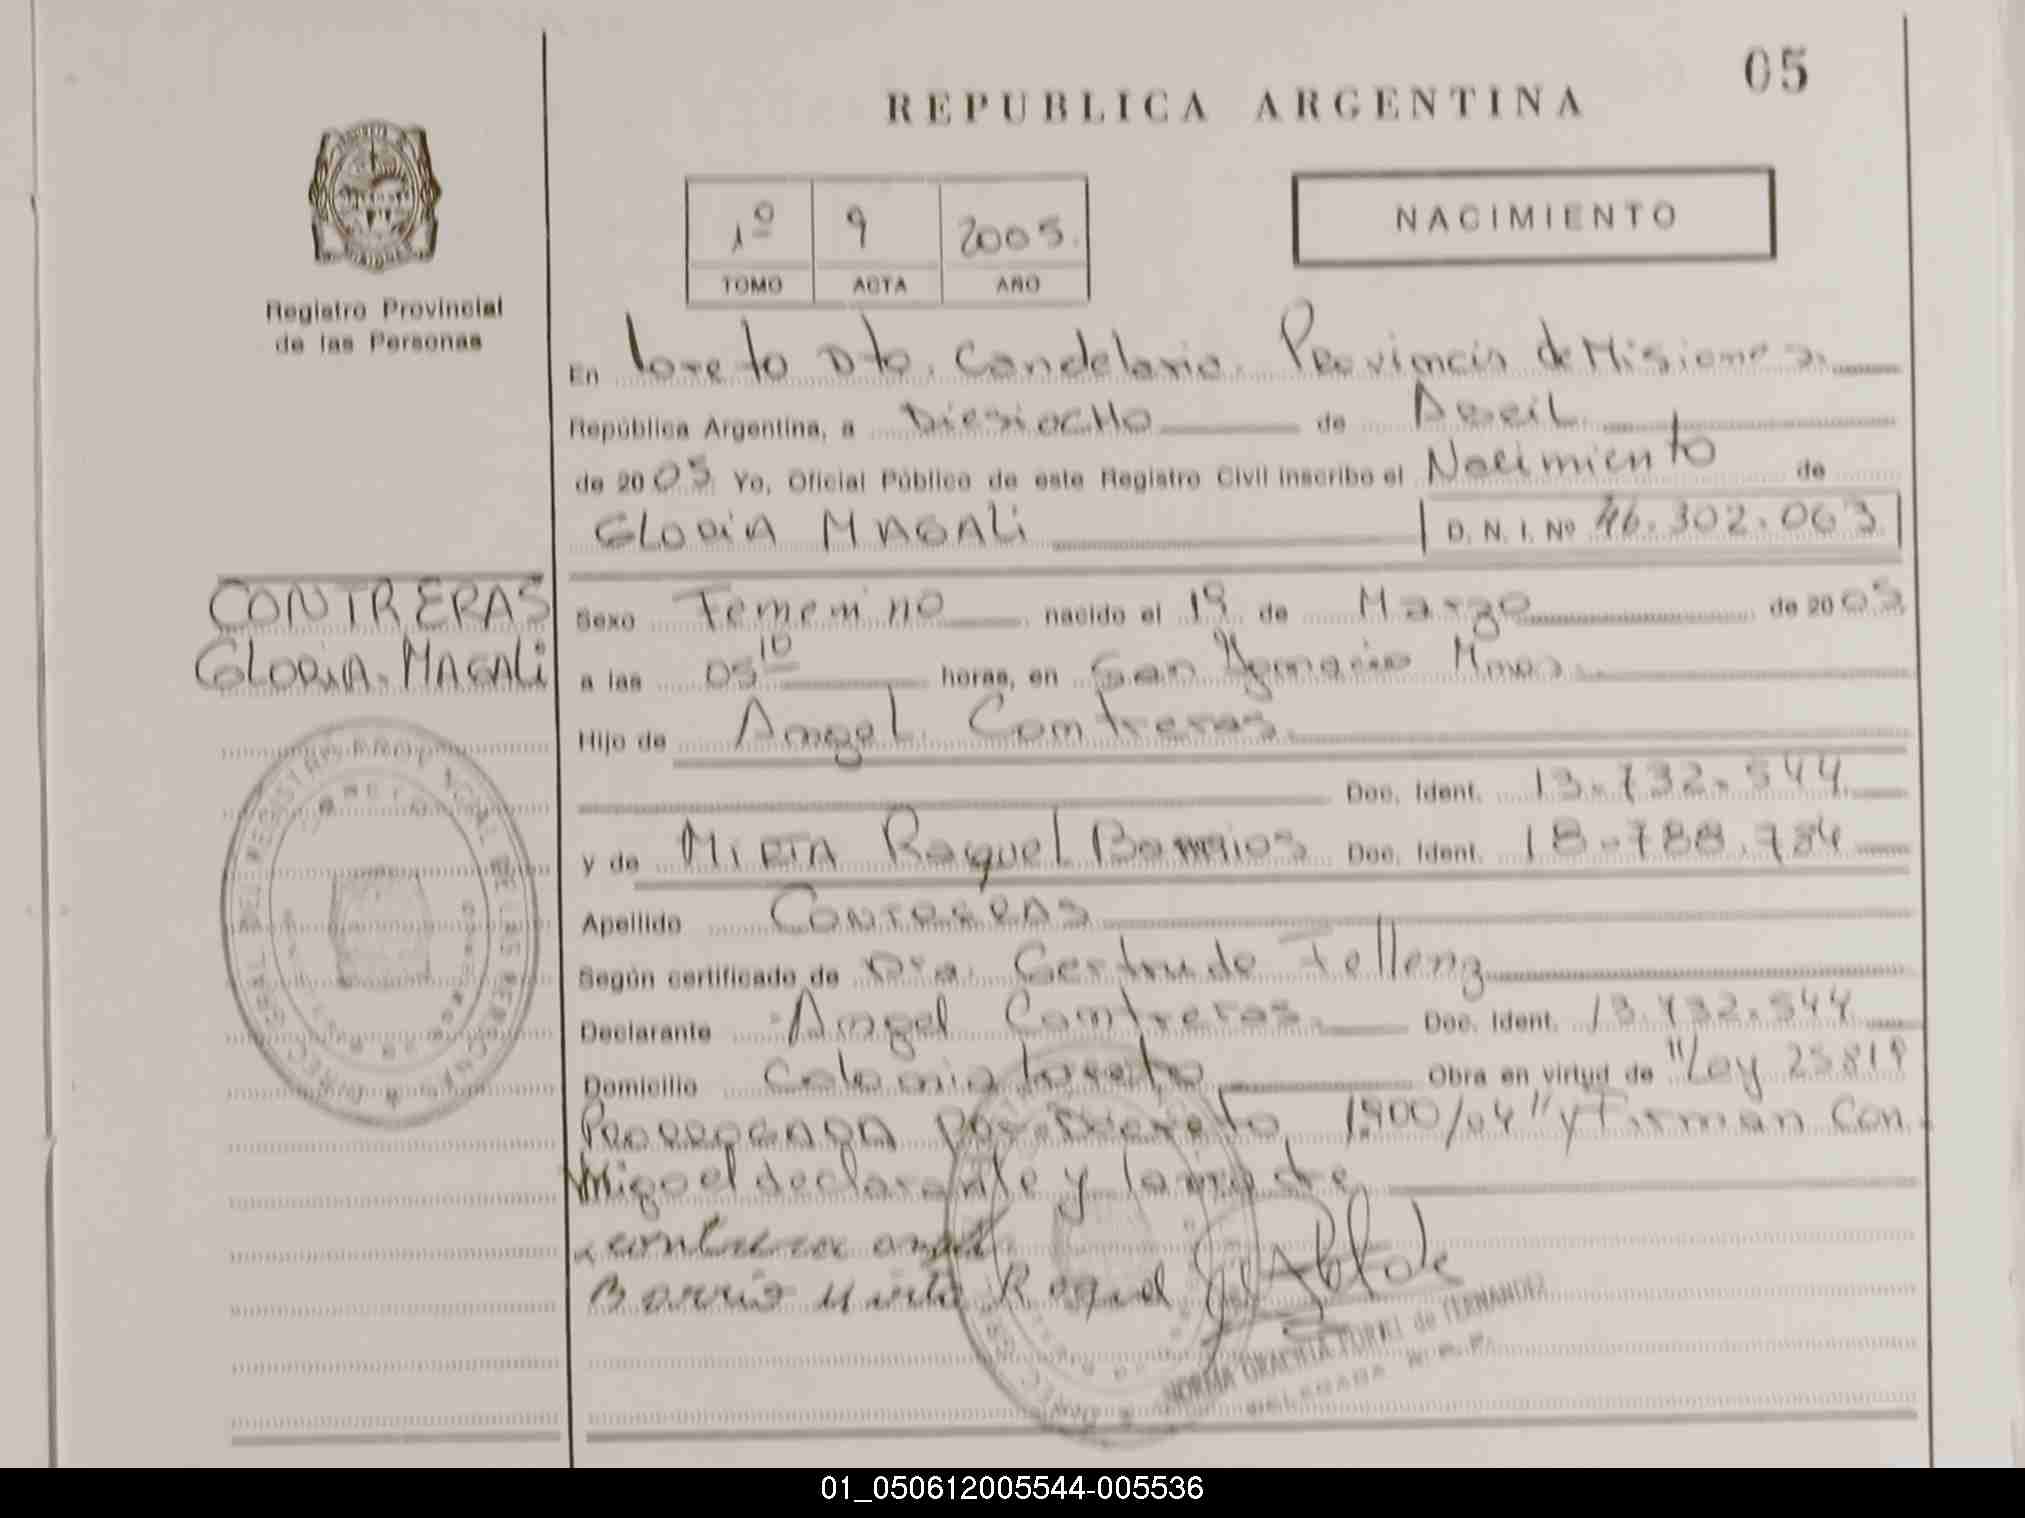 05
REPUBLICA ARGENTINA
1º 9 2005.
TOMO ACTA AÑO
NACIMIENTO
Registro Provincial
de las Personas
En Loreto Dto. Candelaria. Provincia de Misiones.
República Argentina, a Diesiocho de Abril
de 2005 Yo, Oficial Público de este Registro Civil inscribo el Nacimiento de
Gloria Magali D. N. I. Nº 46.302.063
CONTRERAS
Gloria. Magali
Sexo Femenino nacido el 19 de Marzo de 2005
a las 05 10 horas, en San Ignacio Mnes.
Hijo de Angel Contreras
Doc. Ident. 13.732.544
y de Mirta Raquel Barrios Doc. Ident. 18.788.784
Apellido Contreras
Según certificado de Dra. Gertrude Felleng
Declarante Angel Contreras Doc. Ident. 13.732.544
Domicilio Colonia Loreto Obra en virtud de "Ley 25819
Prorrogada por Decreto 1900/04" y Firman con
Migo el declarante y la madre
Barrio Mirta Raquel
NORMA GRACIELA de FERNANDEZ
DELEGADA
01_050612005544-005536